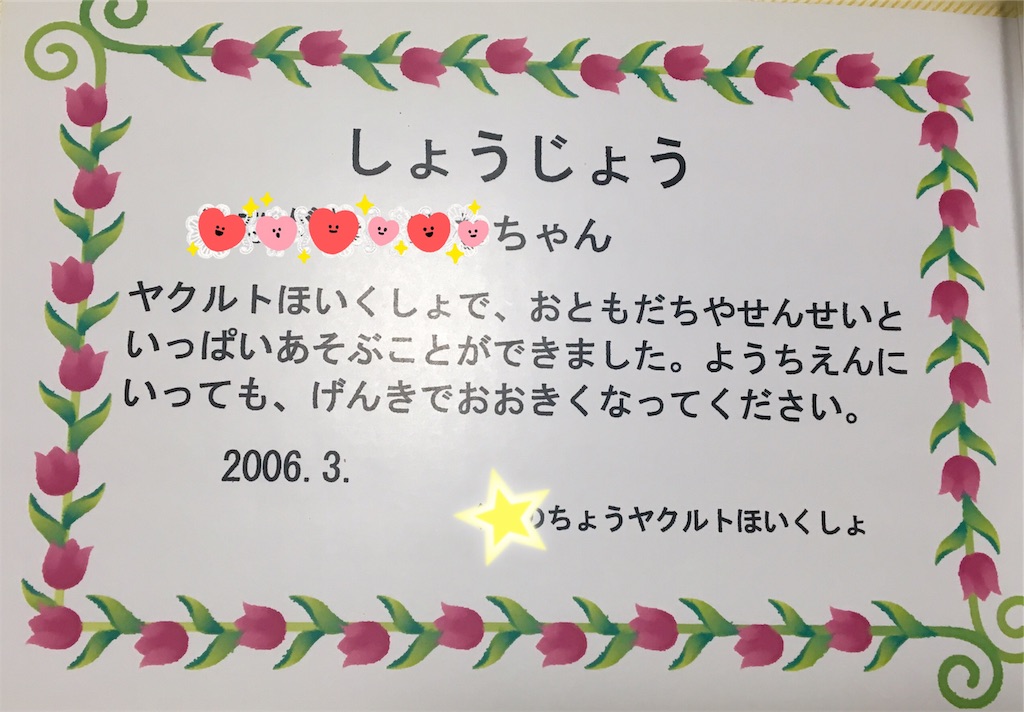 しょうじょう
ちゃん
ヤクルトほいくしょで、おともだちやせんせいと
いっぱいあそぶことができました。ようちえんに
いっても、げんきでおおきくなってください。
2006.3.
のちょうヤクルトほいくしょ